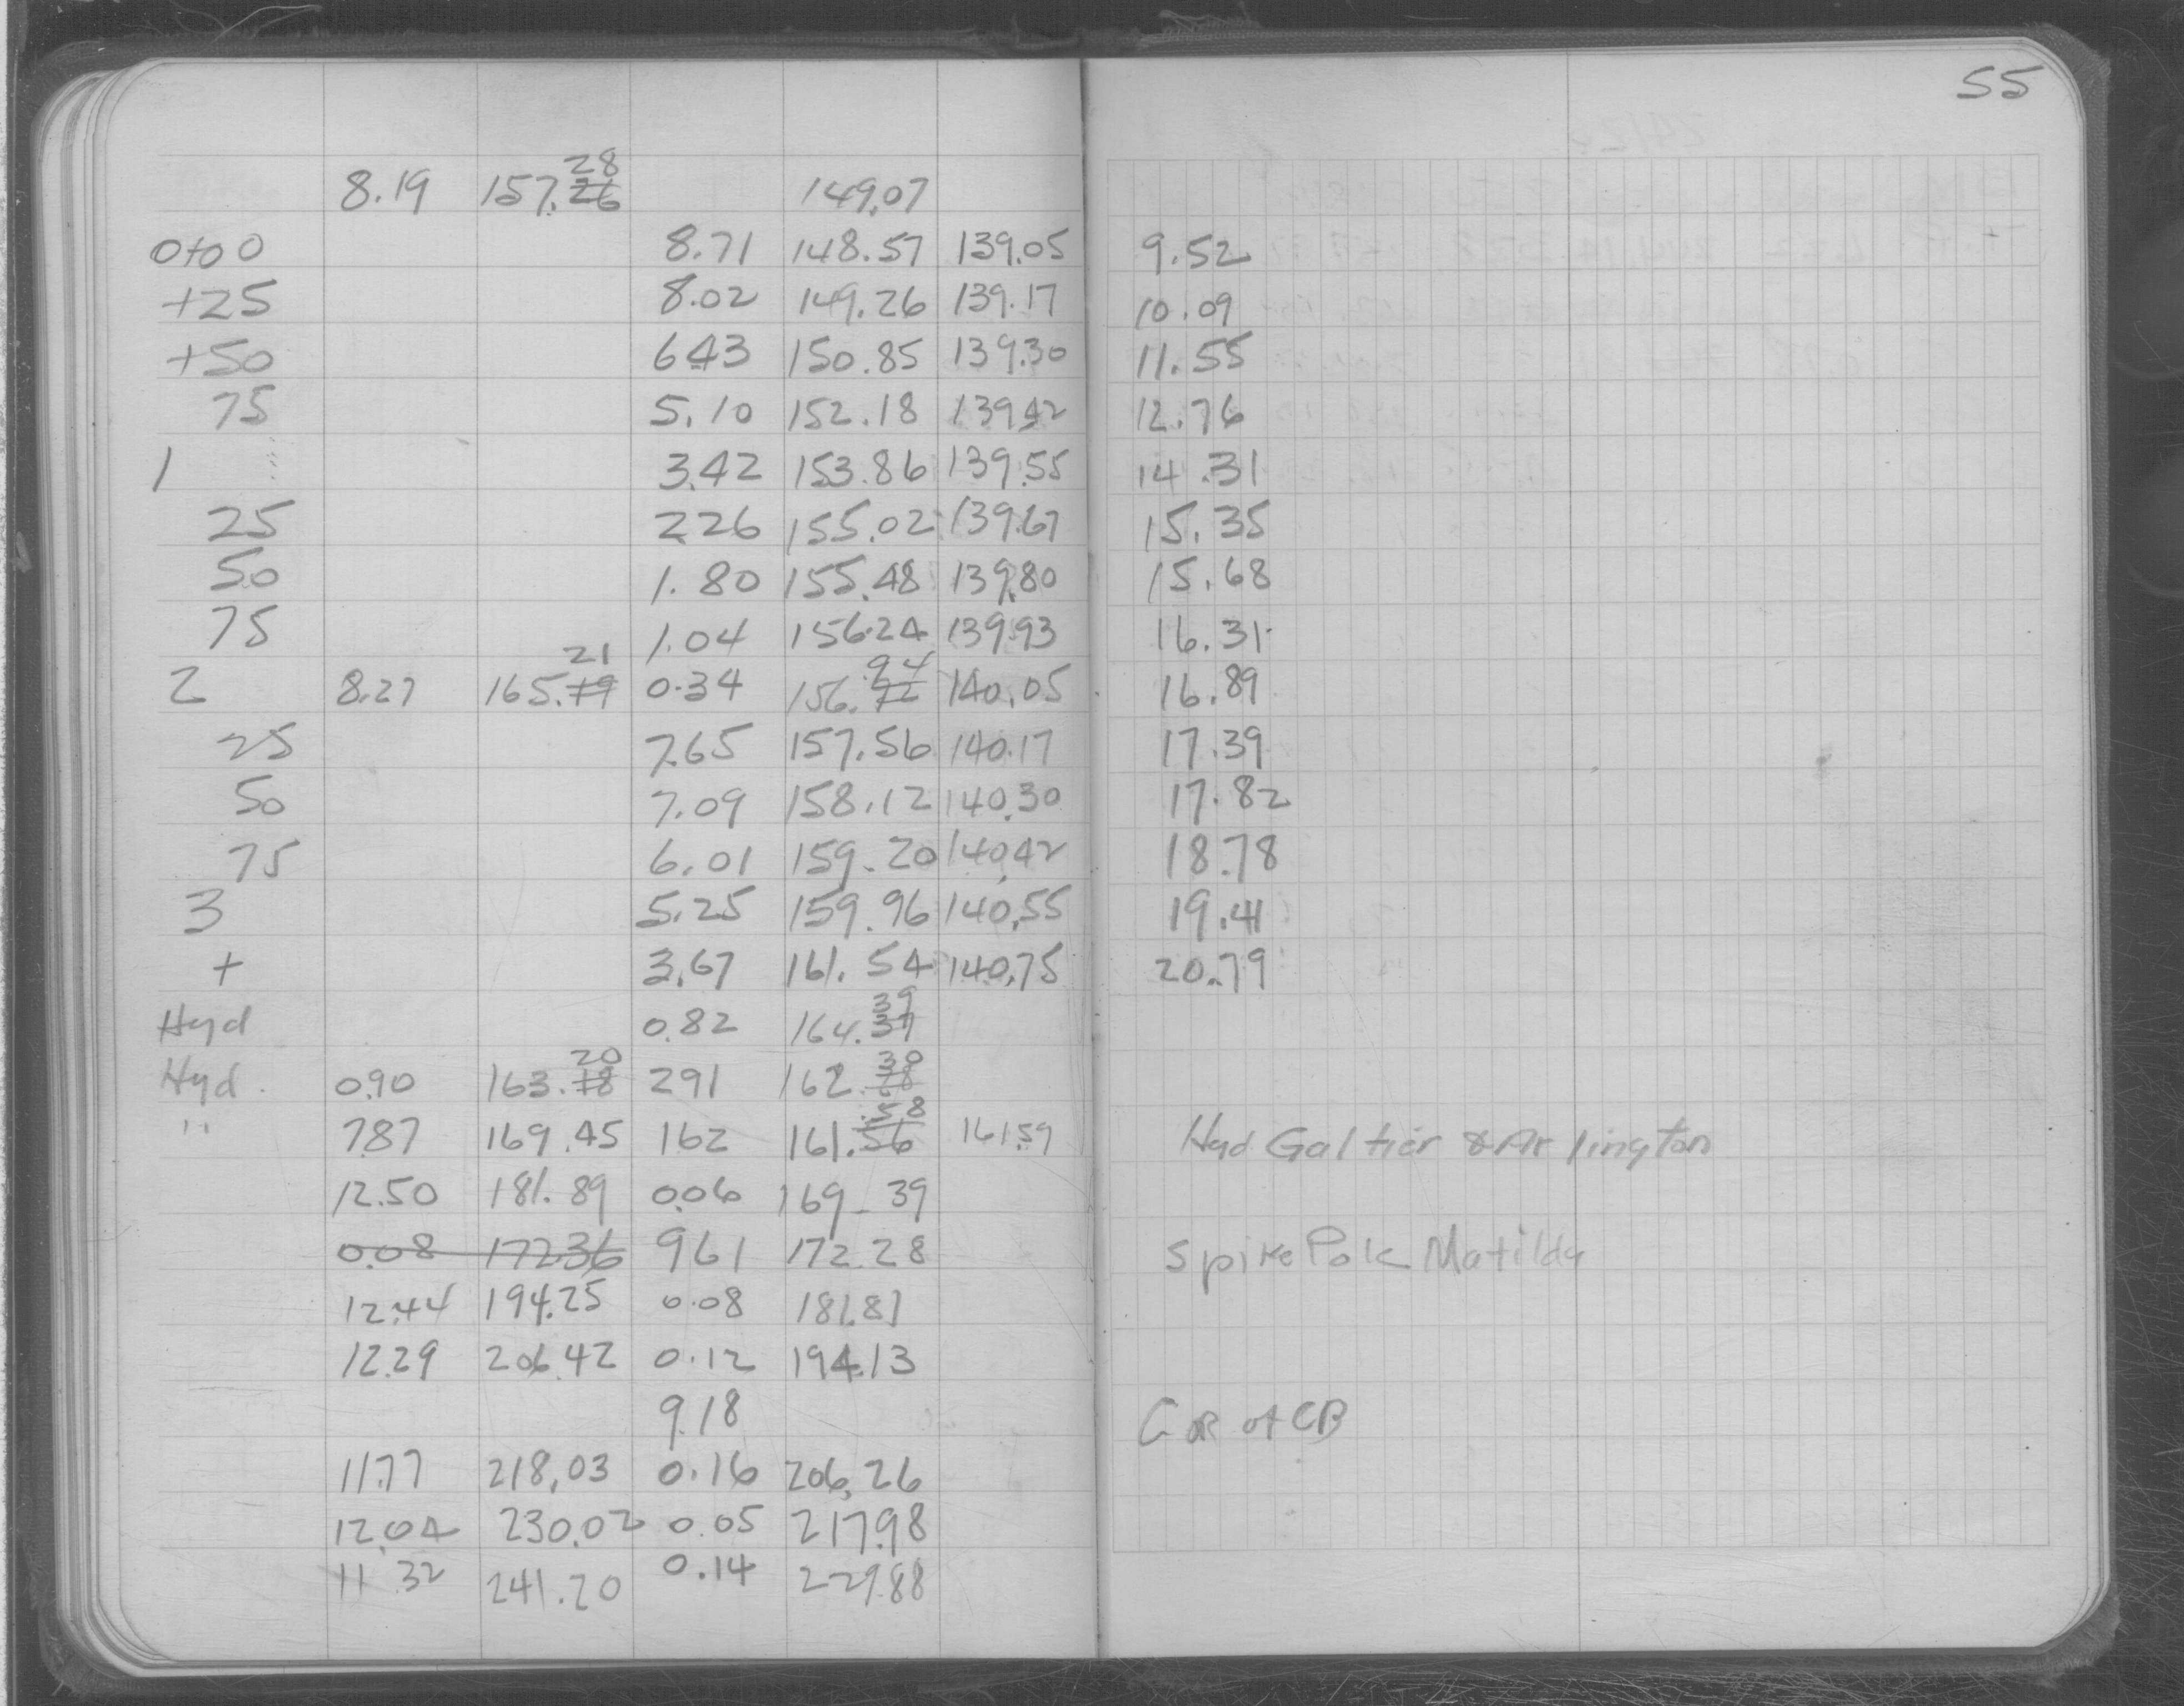 55
8.19 157.28 26 149.07
0+00 8.71 148.57 139.05 9.52
+25 8.02 149.26 139.17 10.09
+50 6.43 150.85 139.30 11.55
75 5.10 152.18 139.42 12.76
1 3.42 153.86 139.55 14.31
25 2.26 155.02 139.67 15.35
50 1.80 155.48 139.80 15.68
75 1.04 156.24 139.93 16.31
2 8.27 165.21 19 0.34 156.94 92 140.05 16.89
25 7.65 157.56 140.17 17.39
50 7.09 158.12 140.30 17.82
75 6.01 159.20 140.42 18.78
3 5.25 159.96 140.55 19.41
+ 3.67 161.54 140.75 20.79
Hyd 0.82 164.39 37
Hyd. 0.90 163.20 18 291 162.30 28
" 7.87 169.45 162 161.58 56 161.59 Hyd Galtier & Arlington
12.50 181.89 0.06 169.39
0.08 172.36 961 172.28 Spike Pole Matilda
12.44 194.25 0.08 181.81
12.29 206.42 0.12 194.13
9.18 Cor of CB
11.77 218.03 0.16 206.26
12.04 230.02 0.05 217.98
11.32 241.20 0.14 229.88